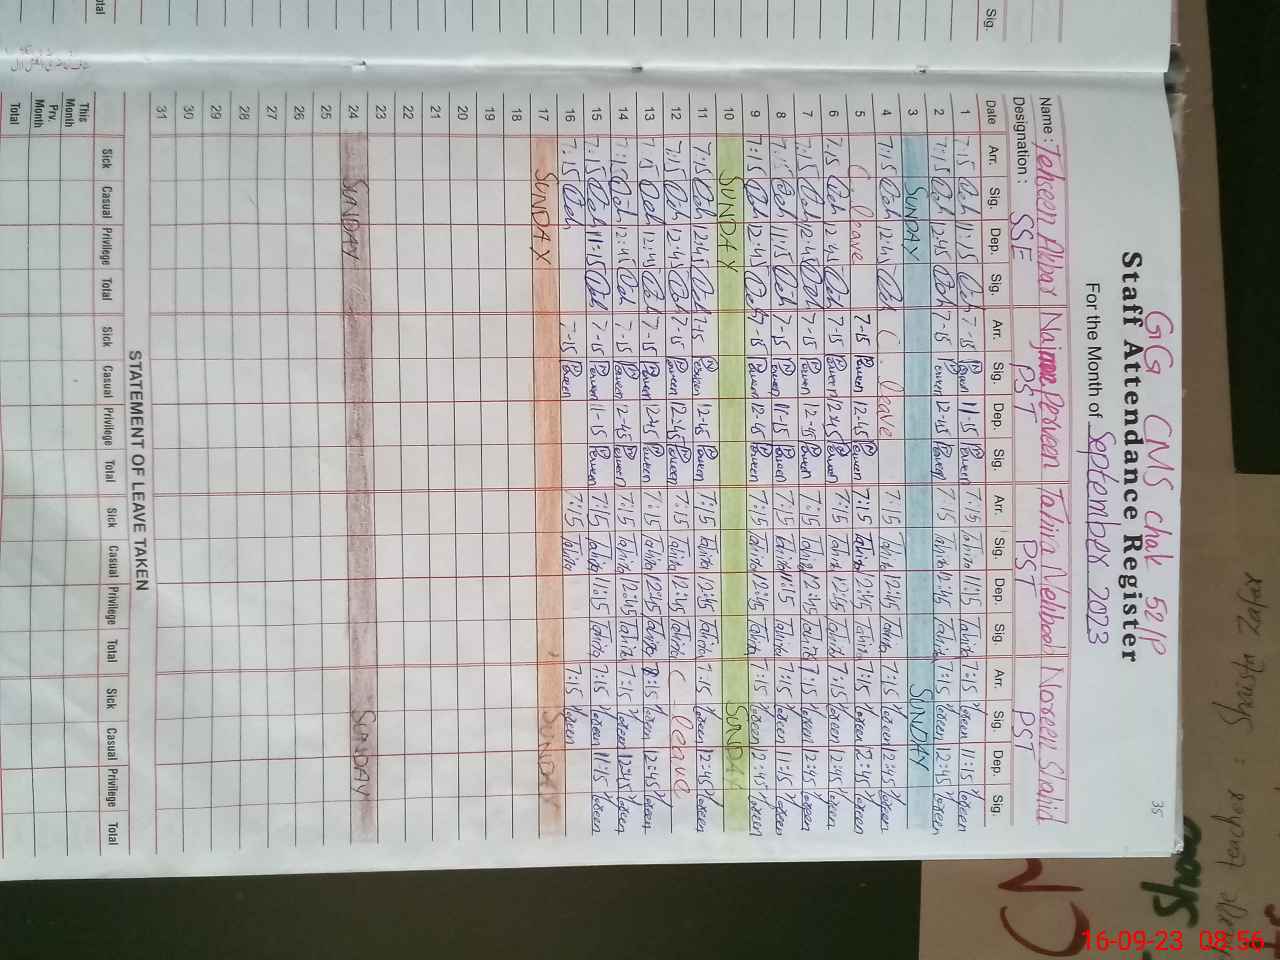 35
GG CMS Chak 52/P
Staff Attendance Register
For the Month of September 2023
Name : Tehseen Akbar Najma Perveen Tahira Mehboob Noreen Shahid
Designation : SSE PST PST PST
Date Arr. Sig. Dep. Sig. Arr. Sig. Dep. Sig. Arr. Sig. Dep. Sig. Arr. Sig. Dep. Sig.
1 7:15 11:15 7-15 Perveen 11-15 Perveen 7:15 Tahira 11:15 Tahira 7:15 Noreen 11:15 Noreen
2 7:15 12:45 7-15 Perveen 12-45 Perveen 7:15 Tahira 12:45 Tahira 7:15 Noreen 12:45 Noreen
3 SUNDAY SUNDAY
4 7:15 12:45 C. leave 7:15 Tahira 12:45 Tahira 7:15 Noreen 12:45 Noreen
5 C. leave 7-15 Perveen 12-45 Perveen 7:15 Tahira 12:45 Tahira 7:15 Noreen 12:45 Noreen
6 7:15 12:45 7-15 Perveen 12-45 Perveen 7:15 Tahira 12:45 Tahira 7:15 Noreen 12:45 Noreen
7 7:15 12:45 7-15 Perveen 12-45 Perveen 7:15 Tahira 12:45 Tahira 7:15 Noreen 12:45 Noreen
8 7:15 11:15 7-15 Perveen 11-15 Perveen 7:15 Tahira 11:15 Tahira 7:15 Noreen 11:15 Noreen
9 7:15 12:45 7-15 Perveen 12-45 Perveen 7:15 Tahira 12:45 Tahira 7:15 Noreen 12:45 Noreen
10 SUNDAY SUNDAY
11 7:15 12:45 7-15 Perveen 12-45 Perveen 7:15 Tahira 12:45 Tahira 7:15 Noreen 12:45 Noreen
12 7:15 12:45 7-15 Perveen 12-45 Perveen 7:15 Tahira 12:45 Tahira C leave
13 7:15 12:45 7-15 Perveen 12-45 Perveen 7:15 Tahira 12:45 Tahira 7:15 Noreen 12:45 Noreen
14 7:15 12:45 7-15 Perveen 12-45 Perveen 7:15 Tahira 12:45 Tahira 7:15 Noreen 12:45 Noreen
15 7:15 11:15 7-15 Perveen 11-15 Perveen 7:15 Tahira 11:15 Tahira 7:15 Noreen 11:15 Noreen
16 7:15 7-15 Perveen 7:15 Tahira 7:15 Noreen
17 SUNDAY SUNDAY
18
19
20
21
22
23
24 SUNDAY SUNDAY
25
26
27
28
29
30
31
STATEMENT OF LEAVE TAKEN
Sick Casual Privilege Total Sick Casual Privilege Total Sick Casual Privilege Total Sick Casual Privilege Total
This Month
Prv. Month
Total
Sig.
Total
teacher : Shaista Zafar
16-09-23 08:56